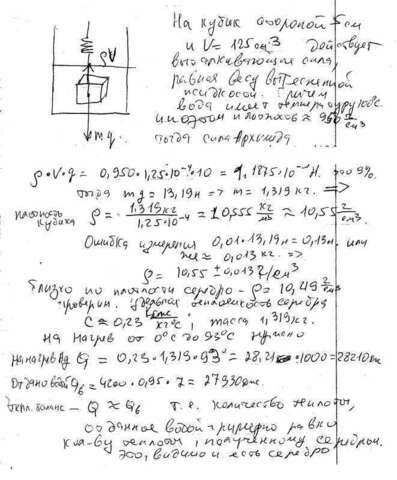 ρA
mg
На кубик стороной 5 см
и V = 125 см³ действует
выталкивающая сила,
равная весу вытесненной
жидкости. Причем
вода имеет температуру 100°C
и плотность ≈ 950
тогда сила Архимеда
ρ·V·g = 0,950·1,25·10⁻⁴·10 = 1,1875·10⁻³ Н.
тогда mg = 13,19н ⇒ m = 1,319 кг. ⇒
плотность кубика ρ = 1,319 кг / 1,25·10⁻⁴ = 10555 кг/м³ ≈ 10,55 г/см³
Ошибка измерения 0,01·13,19н = 0,13н. или
≈ 0,013 кг. ⇒
ρ = 10,55 ± 0,013 г/см³
Близко по плотности серебро - ρ = 10,49 г/см³
проверим. Удельная теплоемкость серебра
C ≈ 0,23 кДж/кг°C, масса 1,319 кг.
на нагрев от 0°C до 93°C нужно
на нагрев Q = 0,23·1,319·93 = 28,21·1000 = 28210 дж
Отдано водой Q₆ = 4200·0,95·7 = 27930 дж.
тепл. баланс - Q ≈ Q₆ т.е. количество теплоты,
отданное водой примерно равно
кол-ву теплоты, полученному серебром.
Это, видимо и есть серебро